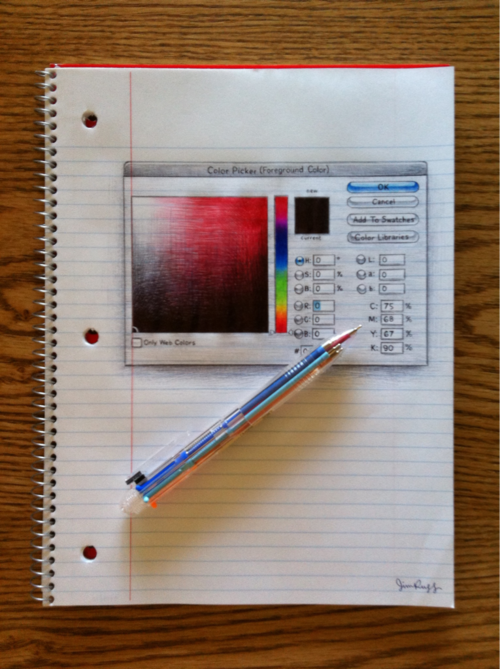 Color Picker (Foreground Color)
new
current
OK
Cancel
Add To Swatches
Color Libraries
H: 0 °
S: 0 %
B: 0 %
R: 0
G: 0
B 0
#
L: 0
a: 0
b: 0
C: 75 %
M: 68 %
Y: 67 %
K: 90 %
Only Web Colors